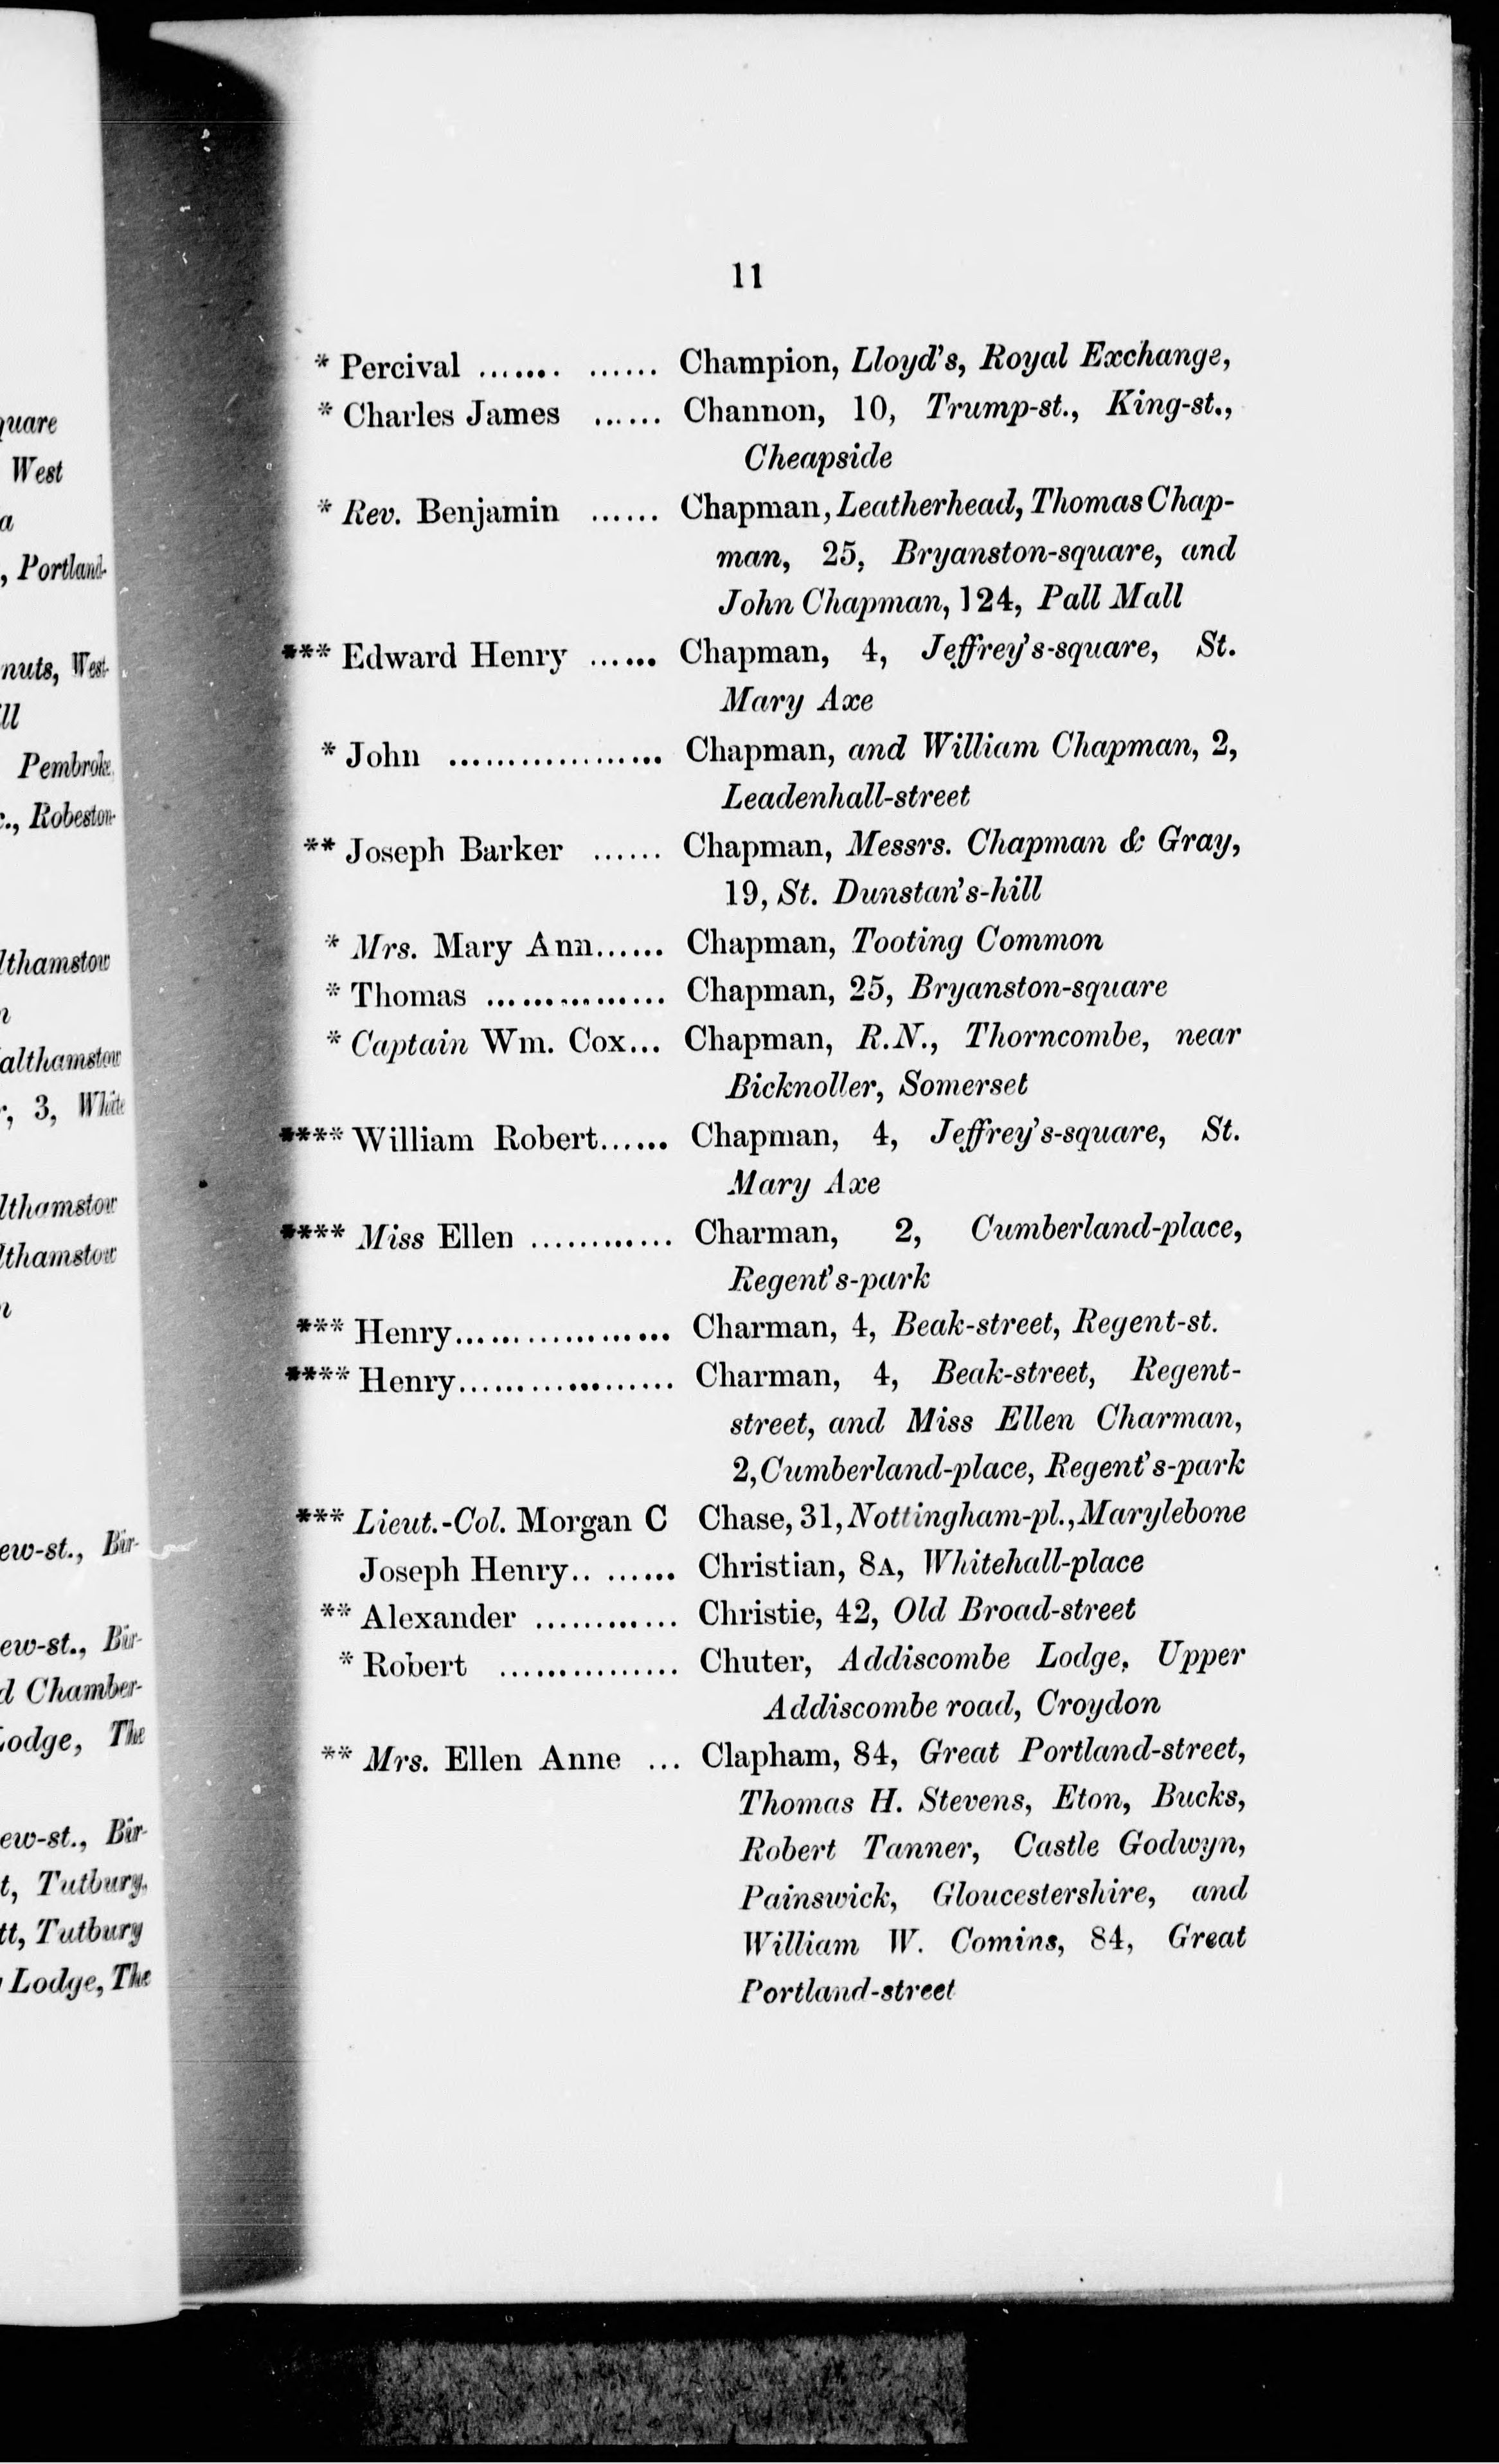 quare
West
a
, Portland-
nuts, West-
ill
Pembroke,
c., Robeston-
lthamstow
n
althamstow
r, 3, White
lthamstow
lthamstow
n
ew-st., Bir-
ew-st., Bir-
d Chamber-
Lodge, The
ew-st., Bir-
t, Tutbury,
tt, Tutbury
Lodge, The
11
* Percival ....... ...... Champion, Lloyd's, Royal Exchange,
* Charles James ...... Channon, 10, Trump-st., King-st.,
Cheapside
* Rev. Benjamin ...... Chapman, Leatherhead, Thomas Chap-
man, 25, Bryanston-square, and
John Chapman, 124, Pall Mall
*** Edward Henry ...... Chapman, 4, Jeffrey's-square, St.
Mary Axe
* John ................... Chapman, and William Chapman, 2,
Leadenhall-street
** Joseph Barker ...... Chapman, Messrs. Chapman & Gray,
19, St. Dunstan's-hill
* Mrs. Mary Ann...... Chapman, Tooting Common
* Thomas ................ Chapman, 25, Bryanston-square
* Captain Wm. Cox... Chapman, R.N., Thorncombe, near
Bicknoller, Somerset
**** William Robert...... Chapman, 4, Jeffrey's-square, St.
Mary Axe
**** Miss Ellen ............. Charman, 2, Cumberland-place,
Regent's-park
*** Henry................... Charman, 4, Beak-street, Regent-st.
**** Henry................... Charman, 4, Beak-street, Regent-
street, and Miss Ellen Charman,
2, Cumberland-place, Regent's-park
*** Lieut.-Col. Morgan C Chase, 31, Nottingham-pl., Marylebone
Joseph Henry.. ....... Christian, 8A, Whitehall-place
** Alexander ............. Christie, 42, Old Broad-street
* Robert ................ Chuter, Addiscombe Lodge, Upper
Addiscombe road, Croydon
** Mrs. Ellen Anne ... Clapham, 84, Great Portland-street,
Thomas H. Stevens, Eton, Bucks,
Robert Tanner, Castle Godwyn,
Painswick, Gloucestershire, and
William W. Comins, 84, Great
Portland-street